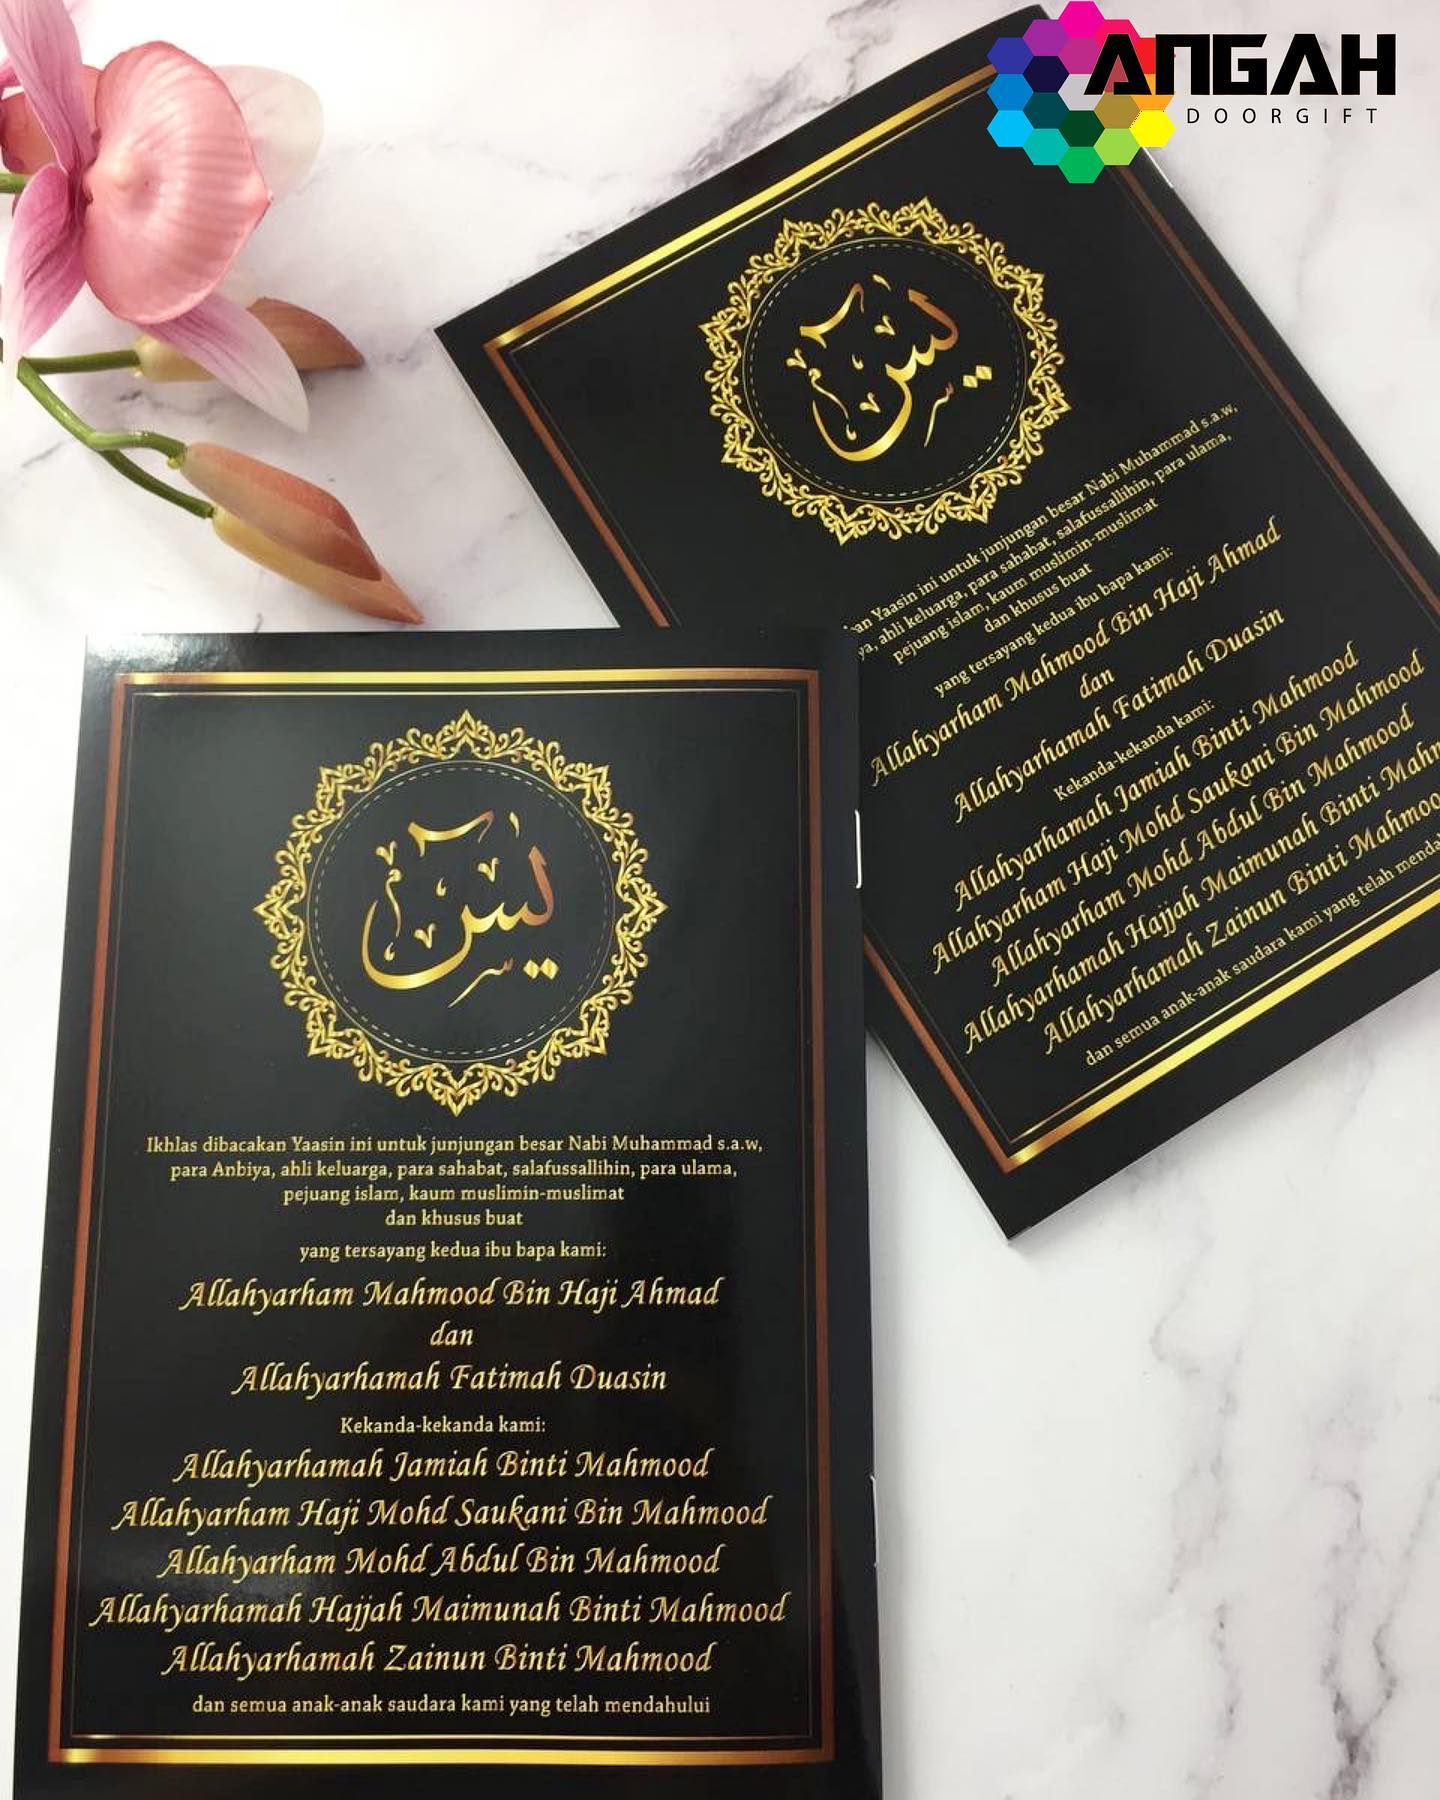 ANGAH
DOORGIFT
يس
an Yaasin ini untuk junjungan besar Nabi Muhammad s.a.w,
ya, ahli keluarga, para sahabat, salafussallihin, para ulama,
pejuang islam, kaum muslimin-muslimat
dan khusus buat
yang tersayang kedua ibu bapa kami:
Allahyarham Mahmood Bin Haji Ahmad
dan
Allahyarhamah Fatimah Duasin
Kekanda-kekanda kami:
Allahyarhamah Jamiah Binti Mahmood
Allahyarham Haji Mohd Saukani Bin Mahmood
Allahyarham Mohd Abdul Bin Mahmood
Allahyarhamah Hajjah Maimunah Binti Mahm
Allahyarhamah Zainun Binti Mahmoo
dan semua anak-anak saudara kami yang telah menda
يس
Ikhlas dibacakan Yaasin ini untuk junjungan besar Nabi Muhammad s.a.w,
para Anbiya, ahli keluarga, para sahabat, salafussallihin, para ulama,
pejuang islam, kaum muslimin-muslimat
dan khusus buat
yang tersayang kedua ibu bapa kami:
Allahyarham Mahmood Bin Haji Ahmad
dan
Allahyarhamah Fatimah Duasin
Kekanda-kekanda kami:
Allahyarhamah Jamiah Binti Mahmood
Allahyarham Haji Mohd Saukani Bin Mahmood
Allahyarham Mohd Abdul Bin Mahmood
Allahyarhamah Hajjah Maimunah Binti Mahmood
Allahyarhamah Zainun Binti Mahmood
dan semua anak-anak saudara kami yang telah mendahului